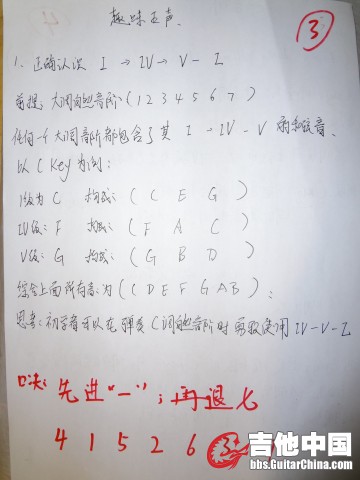 趣味五声
③
1. 正确认识 I → IV → V - I
前提: 大调自然音阶 (1 2 3 4 5 6 7)
任何一个大调音阶都包含了其 I → IV - V 的和弦音.
以 C Key 为例:
I级为 C 构成: ( C E G )
IV级: F 构成: ( F A C )
V级: G 构成: ( G B D )
综合上面所有音: 为 ( C D E F G A B ):
思考: 初学者可以在弹奏 C 调自然音阶时 使用 IV - V - I
口决: 先进"一"; 再退七
4 1 5 2 6 3
吉他中国
bbs.GuitarChina.com